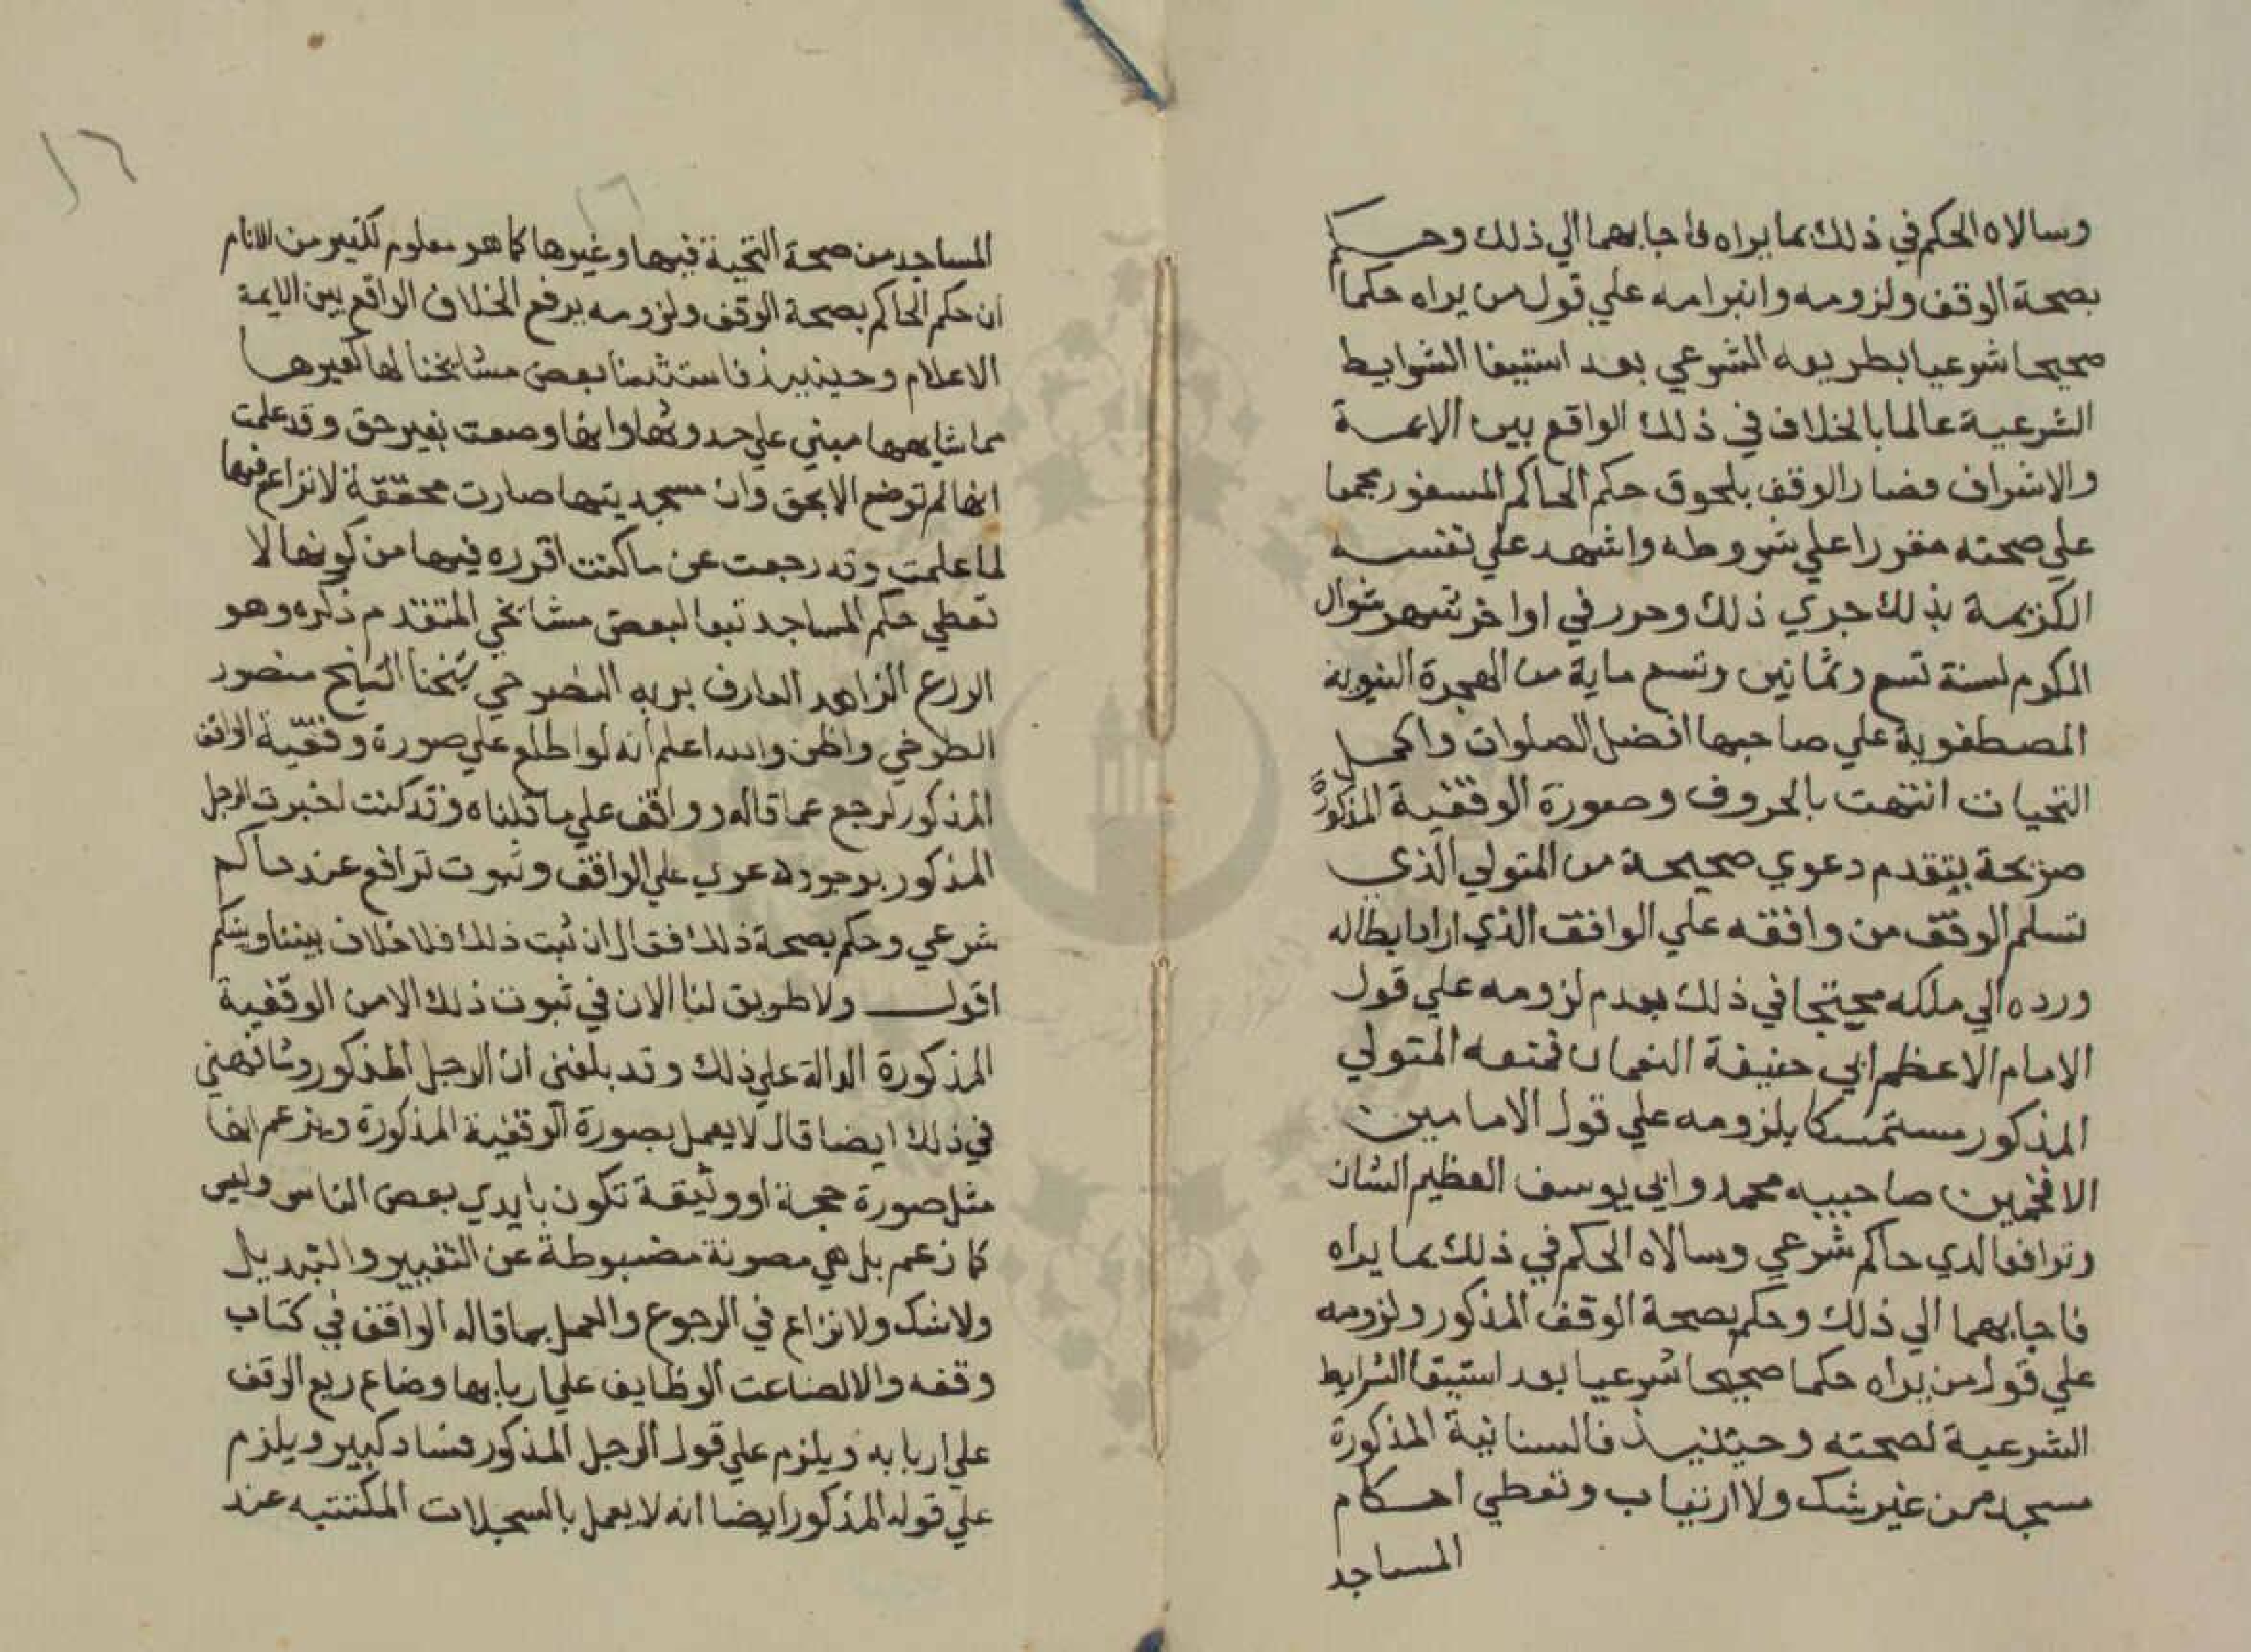 وسالاه الحكم في ذلك بما يراه فاجابهما الي ذلك وحكم
بصحة الوقف ولزومه وانبرامه علي قول من يراه حكما
صحيحا شرعيا بطريقه الشرعي بعد استيفا الشرايط
الشرعية عالما بالخلاف في ذلك الواقع بين الايمة
والاشراف فصار الوقف بلحوق حكم الحاكم المسفور مجمعا
علي صحته مقررا علي شروطه واشهد علي نفسه
الكريمة بذلك جري ذلك وحرر في اواخر شهر شوال
المكرم لسنة تسع وثمانين وتسع ماية من الهجرة النبوية
المصطفوية علي صاحبها افضل الصلوات واكمل
التحيات انتهت بالحروف وصورة الوقفية المذكورة
صريحة بتقدم دعوي صحيحة من المتولي الذي
تسلم الوقف من واقفه علي الواقف الذي اراد ابطاله
ورده الي ملكه محتجا في ذلك بعدم لزومه علي قول
الامام الاعظم ابي حنيفة النعمان فمنعه المتولي
المذكور مستمسكا بلزومه علي قول الامامين
الافخمين صاحبيه محمد وابي يوسف العظيم الشان
وترافعا لدي حاكم شرعي وسالاه الحكم في ذلك بما يراه
فاجابهما الي ذلك وحكم بصحة الوقف المذكور ولزومه
علي قول من يراه حكما صحيحا شرعيا بعد استيفا الشرايط
الشرعية لصحته وحينئيذ فالسنانية المذكورة
مسجد من غير شك ولا ارتياب وتعطي احكام
المساجد
١٦
١٦
المساجد من صحة التحية فيها وغيرها كما هو معلوم لكثير من الانام
ان حكم الحاكم بصحة الوقف ولزومه يرفع الخلاف الواقع بين الايمة
الاعلام وحينييذ فاستثنا بعض مشايخنا لها كغيرها
مما شابهها مبني علي حدوثها وانها وضعت بغير حق وقد علمت
انها لم توضع الا بحق وان مسجديتها صارت محققة لا نزاع فيها
لما علمت وقد رجعت عن ما كنت اقرره فيها من كونها لا
تعطي حكم المساجد تبعا لبعض مشائخي المتقدم ذكره وهو
الورع الزاهد العارف بربه شيخنا الشيخ منصور
الطوخي واظن والله اعلم انه لو اطلع علي صورة وقفية الواقف
المذكور لرجع عما قاله ووافق علي ما قلناه وقد كنت اخبرت الرجل
المذكور بوجود دعوي علي الواقف وثبوت ترافع عند حاكم
شرعي وحكم بصحة ذلك فقال ان ثبت ذلك فلا خلاف بيننا وبينكم
اقول ولا طريق لنا الان في ثبوت ذلك الا من الوقفية
المذكورة الدالة علي ذلك وقد بلغني ان الرجل المذكور وشافهني
في ذلك ايضا قال لا يعمل بصورة الوقفية المذكورة ويزعم انها
مثل صورة حجة او وثيقة تكون بايدي بعض الناس وليس
كما زعم بل هي مصونة مضبوطة عن التغيير والتبديل
ولا شك ولا نزاع في الرجوع والعمل بما قاله الواقف في كتاب
وقفه والا لضاعت الوظايف علي اربابها وضاع ريع الوقف
علي اربابه ويلزم علي قول الرجل المذكور فساد كبير ويلزم
علي قوله المذكور ايضا انه لا يعمل بالسجلات المكتتبه عند